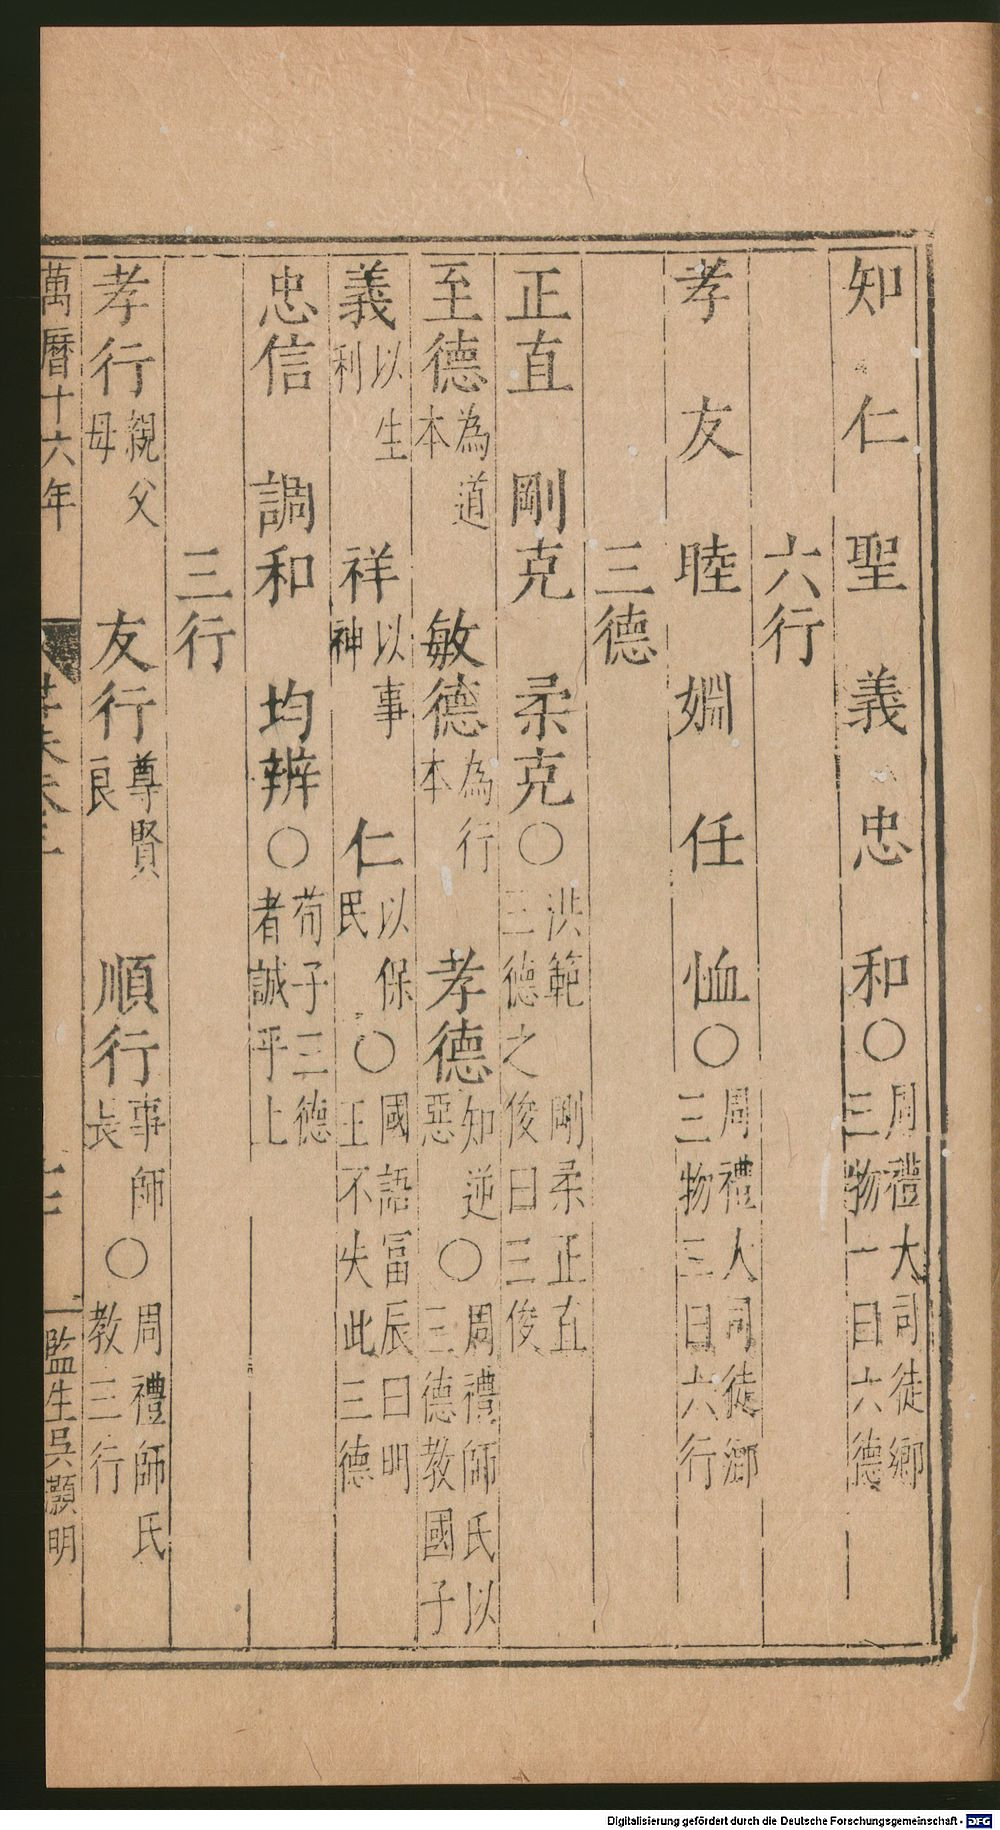 知 仁 聖 義 忠 和〇周禮大司徒鄉三物一曰六德
六行
孝 友 睦 婣 任 恤〇周禮人司徒鄉三物三曰六行
三德
正直 剛克 柔克〇洪範三德之俊曰三俊剛柔正直
至德為道本 敏德為行本 孝德知逆惡〇周禮師氏以三德教國子
義以生利 祥以事神 仁以保民〇國語富辰曰明王不失此三德
忠信 調和 均辨〇荀子三德者誠乎上
三行
孝行親父母 友行尊賢良 順行事師長〇周禮師氏教三行
萬曆十六年 監生吳灝明
Digitalisierung gefördert durch die Deutsche Forschungsgemeinschaft - DFG